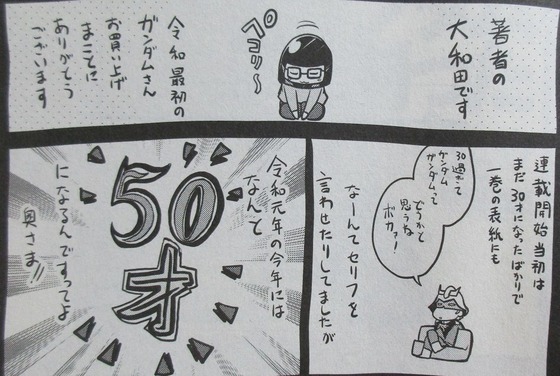 著者の
大和田です
ペコリ〜
令和最初の
ガンダムさん
お買い上げ
まことに
ありがとう
ございます
連載開始当初は
まだ30才になったばかりで
一巻の表紙にも
30過ぎて
ガンダム
ガンダムって
どうかと
思うな
ボカァ!
なーんてセリフを
言わせたりしてましたが
令和元年の今年には
なんと
50才
になるんですってよ
奥さま!!